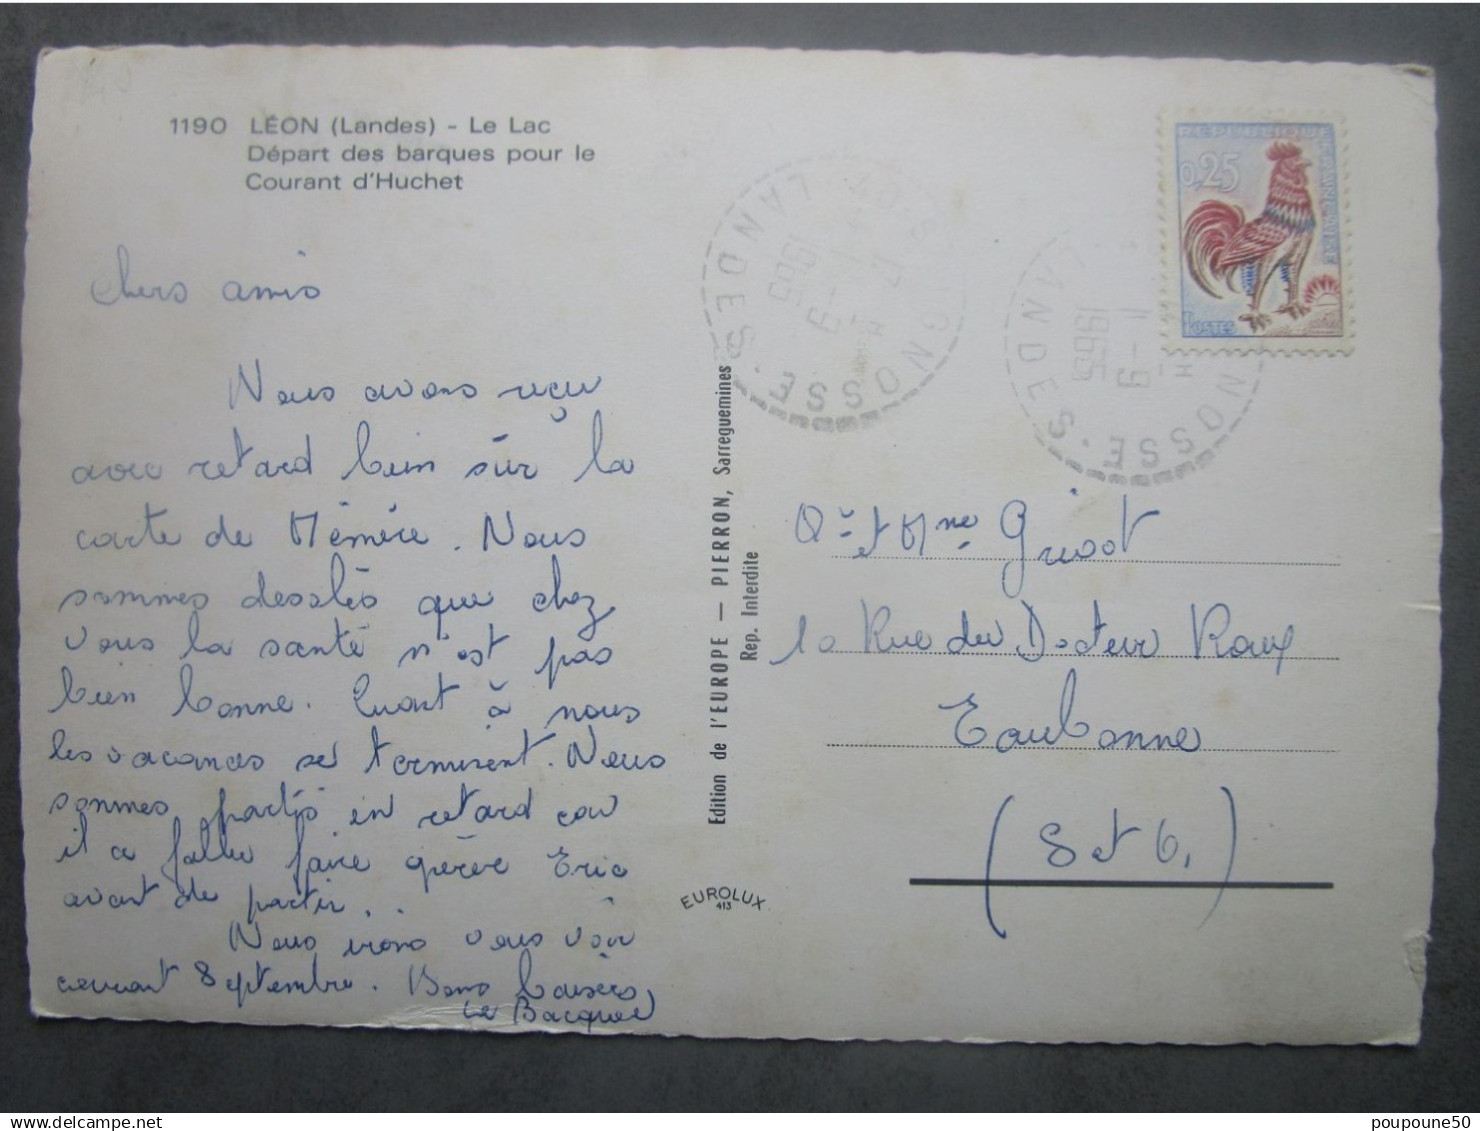 1190 LÉON (Landes) - Le Lac
Départ des barques pour le
Courant d'Huchet
chers amis
Nous avons reçu
avec retard bien sûr la
carte de Mémère. Nous
sommes desolés que chez
vous la santé n'est pas
bien bonne. Quant à nous
les vacances se terminent. Nous
sommes partis en retard car
il a fallu faire opérer Eric
avant de partir.
Nous irons vous voir
courant Septembre. Bons baisers
Edition de l'EUROPE — PIERRON, Sarreguemines
Rep. Interdite
EUROLUX
413
LANDES
1965
LANDES
11-9
1965
0,25
POSTES
et Mme
10 Rue du Docteur Roux
Eaubonne
(S et O.)
poupoune50